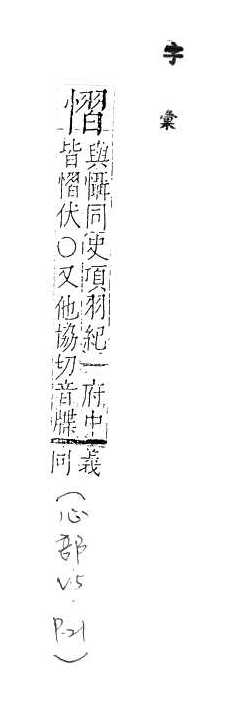 字彙
慴
與懾同史項羽紀一府中
皆慴伏○又他協切音牒
義
同
(心部
V.5
P.21)